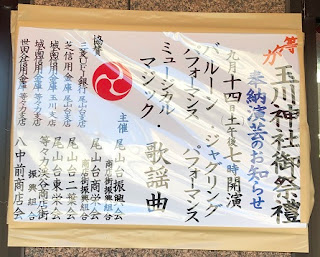 等々力
玉川神社御祭禮
奉納演芸のお知らせ
九月十四日土午後七時開演
バルーン・ジャグリング
パフォーマンス パフォーマンス
ミュージカル
マジック・歌謡曲
主催
尾山台振興会
尾山台商栄会
商店街振興組合
尾山台二葉会
尾山台東栄会
等々力渓谷商店街
振興組合
八中前商店会
協賛
三菱UFJ銀行 尾山台支店
芝信用金庫 尾山台支店
城南信用金庫 玉川支店
城南信用金庫 等々力支店
世田谷信用金庫 等々力支店